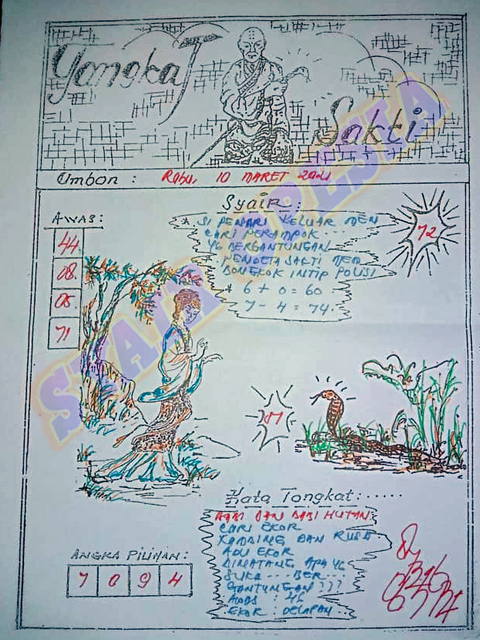 Tongkat
Sakti
Umbon : RABU, 10 MARET 2021
Syair :
SI PENARI KELUAR MEN
CARI PERAMPOK...
YG BERGANTUNGAN
PENDETA SAKTI MEM
BONGKOK INTIP POLISI
6 + 0 = 60.
7 - 4 = 74.
72
AWAS:
44
08
05
71
SYAIR
Kata Tongkat:......
AYAM DAN BABI HUTAN
CARI EKOR
KAMBING DAN RUSA
ADU EKOR
BINATANG APA YG
SUKA --- BER---
GANTUNGAN ???
EKOR : DELAPAN
ANGKA PILIHAN:
7 0 9 4